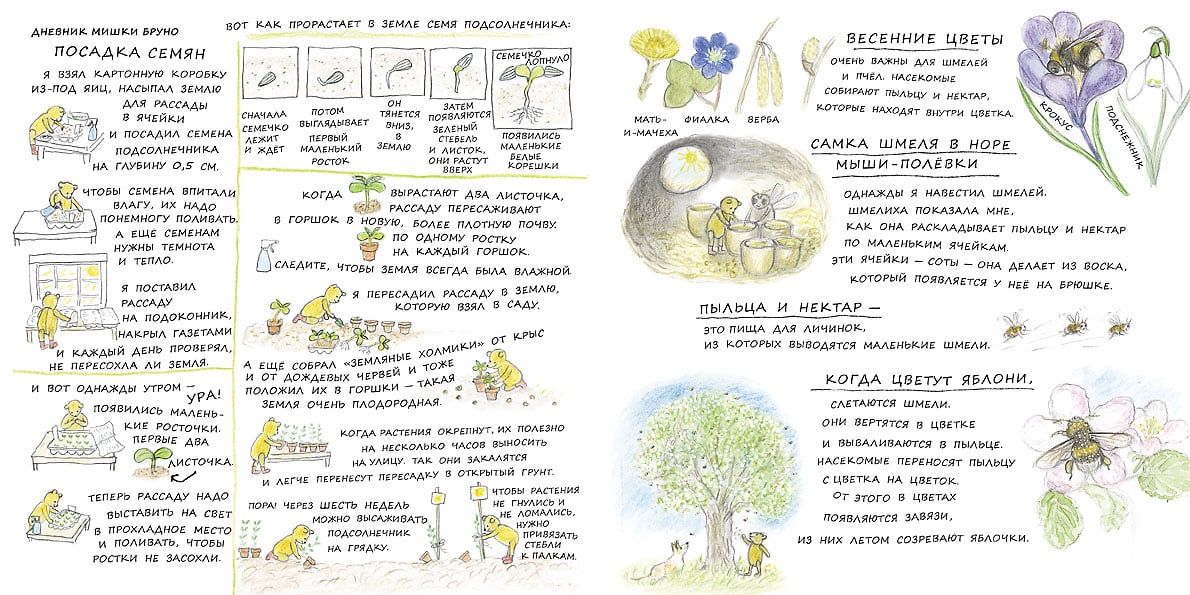 ДНЕВНИК МИШКИ БРУНО
ПОСАДКА СЕМЯН
Я ВЗЯЛ КАРТОННУЮ КОРОБКУ
ИЗ-ПОД ЯИЦ, НАСЫПАЛ ЗЕМЛЮ
ДЛЯ РАССАДЫ
В ЯЧЕЙКИ
И ПОСАДИЛ СЕМЕНА
ПОДСОЛНЕЧНИКА
НА ГЛУБИНУ 0,5 СМ.
ЧТОБЫ СЕМЕНА ВПИТАЛИ
ВЛАГУ, ИХ НАДО
ПОНЕМНОГУ ПОЛИВАТЬ.
А ЕЩЕ СЕМЕНАМ
НУЖНЫ ТЕМНОТА
И ТЕПЛО.
Я ПОСТАВИЛ
РАССАДУ
НА ПОДОКОННИК,
НАКРЫЛ ГАЗЕТАМИ
И КАЖДЫЙ ДЕНЬ ПРОВЕРЯЛ,
НЕ ПЕРЕСОХЛА ЛИ ЗЕМЛЯ.
И ВОТ ОДНАЖДЫ УТРОМ –
УРА!
ПОЯВИЛИСЬ МАЛЕНЬ-
КИЕ РОСТОЧКИ.
ПЕРВЫЕ ДВА
ЛИСТОЧКА.
ТЕПЕРЬ РАССАДУ НАДО
ВЫСТАВИТЬ НА СВЕТ
В ПРОХЛАДНОЕ МЕСТО
И ПОЛИВАТЬ, ЧТОБЫ
РОСТКИ НЕ ЗАСОХЛИ.
ВОТ КАК ПРОРАСТАЕТ В ЗЕМЛЕ СЕМЯ ПОДСОЛНЕЧНИКА:
СНАЧАЛА
СЕМЕЧКО
ЛЕЖИТ
И ЖДЁТ
ПОТОМ
ВЫГЛЯДЫВАЕТ
ПЕРВЫЙ
МАЛЕНЬКИЙ
РОСТОК
ОН
ТЯНЕТСЯ
ВНИЗ,
В
ЗЕМЛЮ
ЗАТЕМ
ПОЯВЛЯЮТСЯ
ЗЕЛЕНЫЙ
СТЕБЕЛЬ
И ЛИСТОК,
ОНИ РАСТУТ
ВВЕРХ
СЕМЕЧКО
ЛОПНУЛО
ПОЯВИЛИСЬ
МАЛЕНЬКИЕ
БЕЛЫЕ
КОРЕШКИ
КОГДА ВЫРАСТАЮТ ДВА ЛИСТОЧКА,
РАССАДУ ПЕРЕСАЖИВАЮТ
В ГОРШОК В НОВУЮ, БОЛЕЕ ПЛОТНУЮ ПОЧВУ.
ПО ОДНОМУ РОСТКУ
НА КАЖДЫЙ ГОРШОК.
СЛЕДИТЕ, ЧТОБЫ ЗЕМЛЯ ВСЕГДА БЫЛА ВЛАЖНОЙ.
Я ПЕРЕСАДИЛ РАССАДУ В ЗЕМЛЮ,
КОТОРУЮ ВЗЯЛ В САДУ.
А ЕЩЁ СОБРАЛ «ЗЕМЛЯНЫЕ ХОЛМИКИ» ОТ КРЫС
И ОТ ДОЖДЕВЫХ ЧЕРВЕЙ И ТОЖЕ
ПОЛОЖИЛ ИХ В ГОРШКИ – ТАКАЯ
ЗЕМЛЯ ОЧЕНЬ ПЛОДОРОДНАЯ.
КОГДА РАСТЕНИЯ ОКРЕПНУТ, ИХ ПОЛЕЗНО
НА НЕСКОЛЬКО ЧАСОВ ВЫНОСИТЬ
НА УЛИЦУ. ТАК ОНИ ЗАКАЛЯТСЯ
И ЛЕГЧЕ ПЕРЕНЕСУТ ПЕРЕСАДКУ В ОТКРЫТЫЙ ГРУНТ.
ПОРА! ЧЕРЕЗ ШЕСТЬ НЕДЕЛЬ
МОЖНО ВЫСАЖИВАТЬ
ПОДСОЛНЕЧНИК
НА ГРЯДКУ.
ЧТОБЫ РАСТЕНИЯ
НЕ ГНУЛИСЬ И
НЕ ЛОМАЛИСЬ,
НУЖНО
ПРИВЯЗАТЬ
СТЕБЛИ
К ПАЛКАМ.
МАТЬ-
И-МАЧЕХА
ФИАЛКА
ВЕРБА
ВЕСЕННИЕ ЦВЕТЫ
ОЧЕНЬ ВАЖНЫ ДЛЯ ШМЕЛЕЙ
И ПЧЁЛ. НАСЕКОМЫЕ
СОБИРАЮТ ПЫЛЬЦУ И НЕКТАР,
КОТОРЫЕ НАХОДЯТ ВНУТРИ ЦВЕТКА.
КРОКУС
ПОДСНЕЖНИК
САМКА ШМЕЛЯ В НОРЕ
МЫШИ-ПОЛЁВКИ
ОДНАЖДЫ Я НАВЕСТИЛ ШМЕЛЕЙ.
ШМЕЛИХА ПОКАЗАЛА МНЕ,
КАК ОНА РАСКЛАДЫВАЕТ ПЫЛЬЦУ И НЕКТАР
ПО МАЛЕНЬКИМ ЯЧЕЙКАМ.
ЭТИ ЯЧЕЙКИ – СОТЫ – ОНА ДЕЛАЕТ ИЗ ВОСКА,
КОТОРЫЙ ПОЯВЛЯЕТСЯ У НЕЁ НА БРЮШКЕ.
ПЫЛЬЦА И НЕКТАР –
ЭТО ПИЩА ДЛЯ ЛИЧИНОК,
ИЗ КОТОРЫХ ВЫВОДЯТСЯ МАЛЕНЬКИЕ ШМЕЛИ.
КОГДА ЦВЕТУТ ЯБЛОНИ,
СЛЕТАЮТСЯ ШМЕЛИ.
ОНИ ВЕРТЯТСЯ В ЦВЕТКЕ
И ВЫВАЛИВАЮТСЯ В ПЫЛЬЦЕ.
НАСЕКОМЫЕ ПЕРЕНОСЯТ ПЫЛЬЦУ
С ЦВЕТКА НА ЦВЕТОК.
ОТ ЭТОГО В ЦВЕТАХ
ПОЯВЛЯЮТСЯ ЗАВЯЗИ,
ИЗ НИХ ЛЕТОМ СОЗРЕВАЮТ ЯБЛОЧКИ.